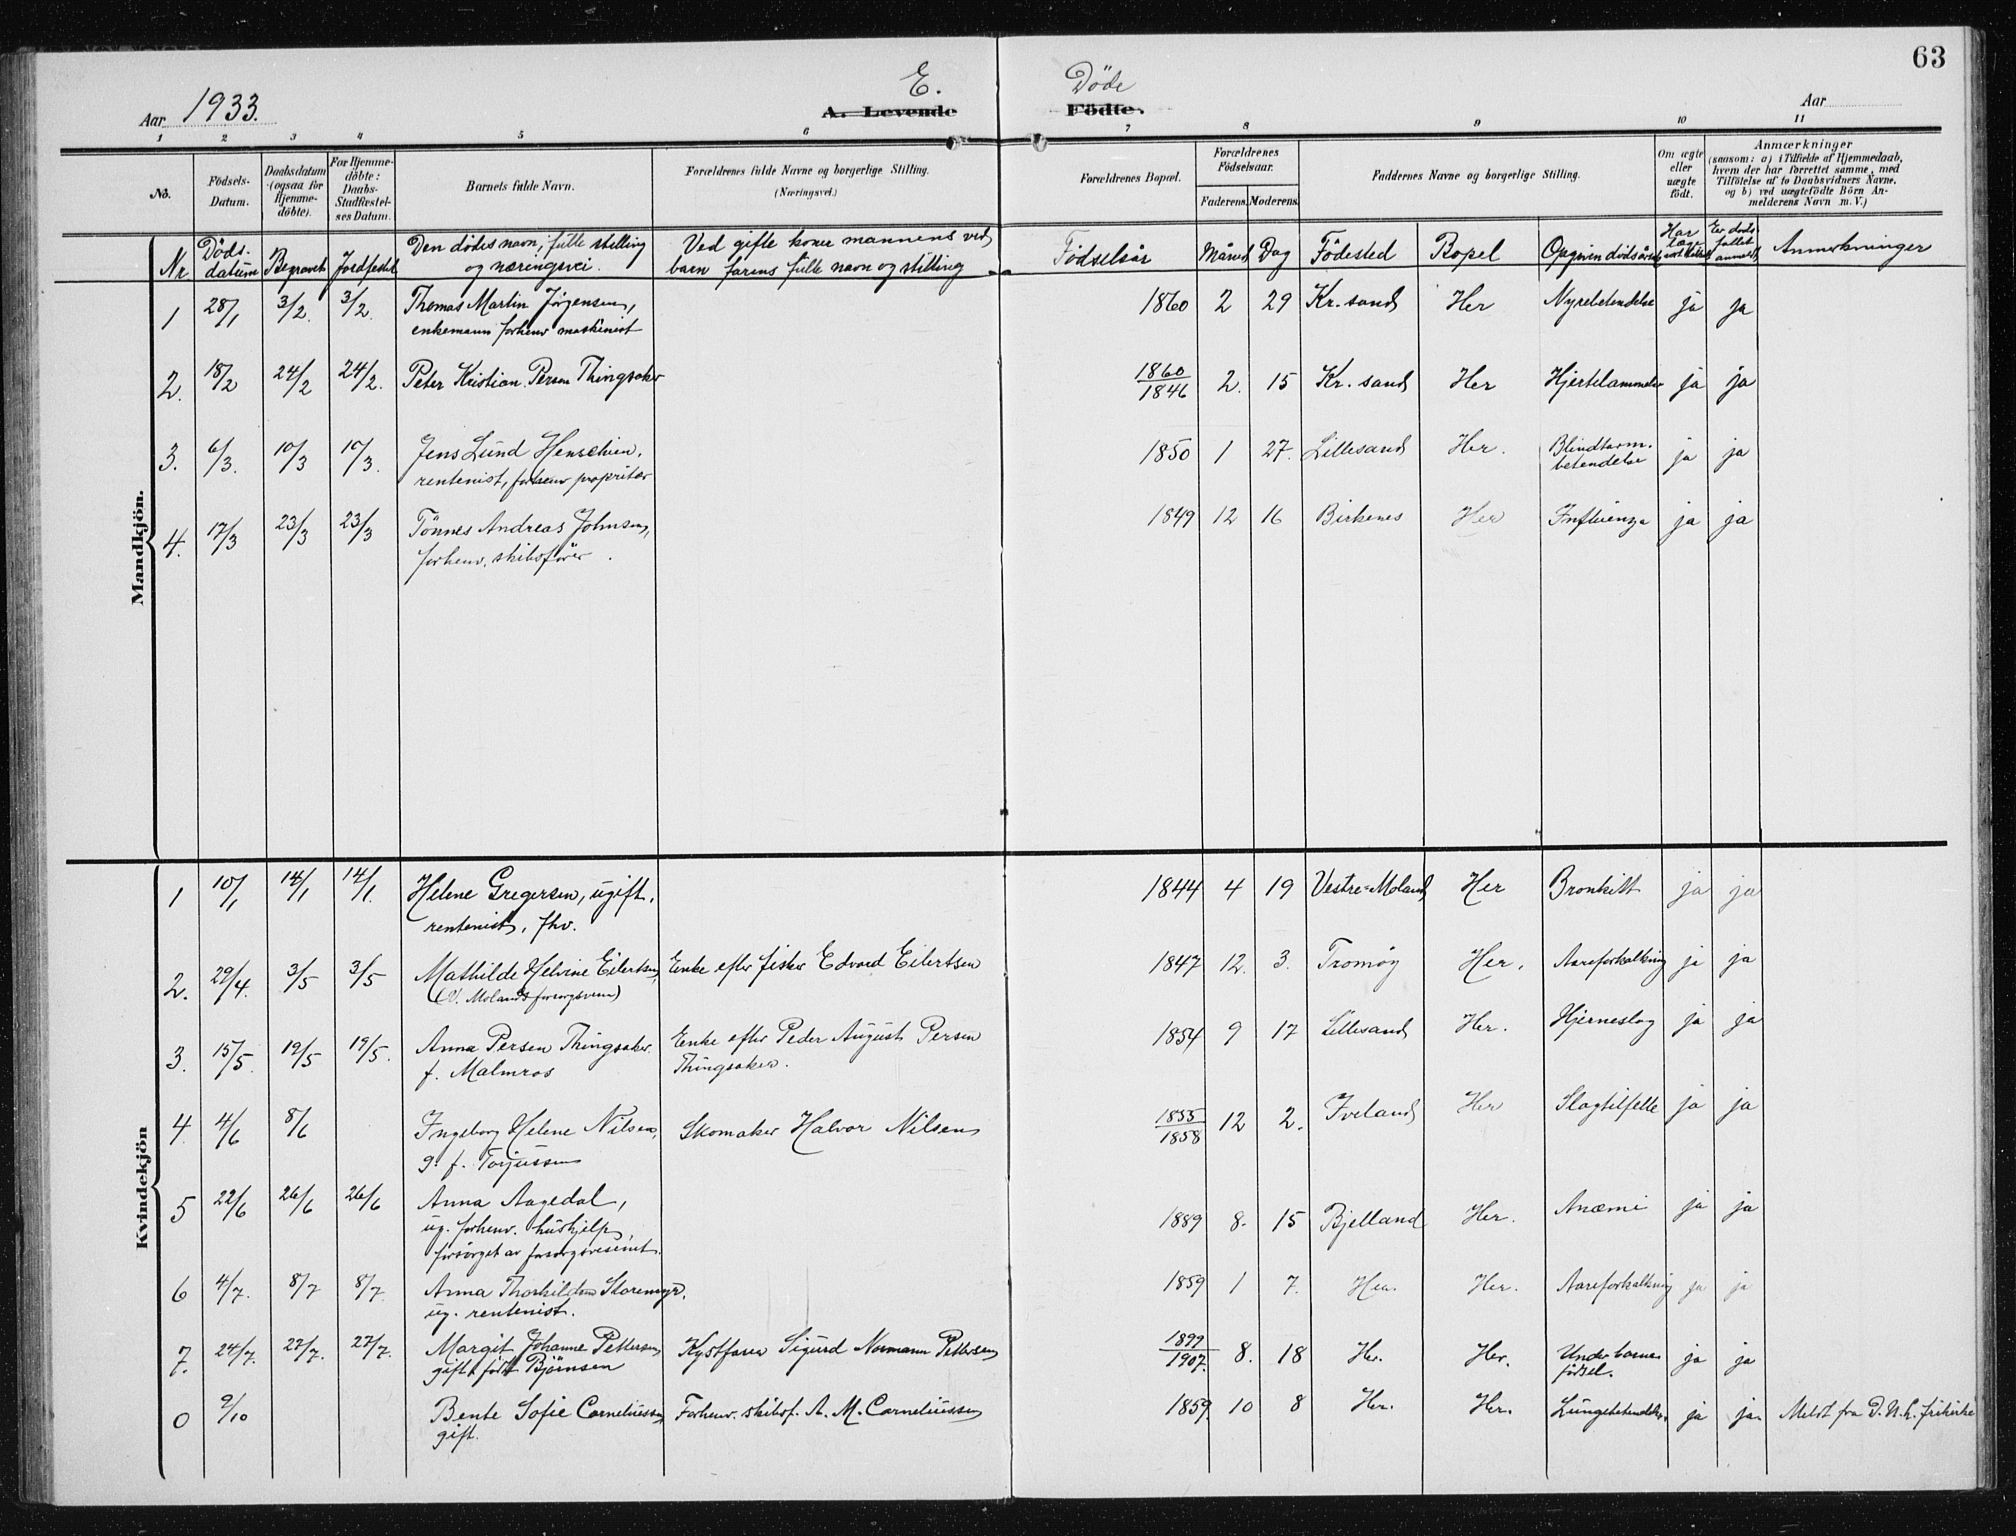 63
Aar 1933.
E. Døde
A. Levende Födte.
Aar
1 2 3 4 5 6 7 8 9 10 11
No.
Födsels-Datum.
Daabsdatum (ogsaa for Hjemmedöbte).
For Hjemmedöbte: Daabs-Stadfæstelses Datum.
Barnets fulde Navn.
Forældrenes fulde Navne og borgerlige Stilling.
(Næringsvei.)
Forældrenes Bopæl.
Forældrenes Födselsaar.
Faderens. Moderens.
Faddernes Navne og borgerlige Stilling.
Om ægte eller uægte födt.
Anmærkninger
(saasom: a) i Tilfælde af Hjemmedaab, hvem der har forrettet samme, med Tilföielse af to Daabsvidners Navne, og b) ved uægtefödte Börn Anmelderens Navn m. V.)
Nr Døds-datum Begravet Jordfestet Den dødes navn, fulle stilling og næringsvei. Ved gifte koner mannens ved barn farens fulle navn og stilling Fødselsår Måned Dag Fødested Bopel Opgiven dødsårsak Har læge vært tilkalt Er dødsfallet anmeldt Anmerkninger
Mandkjön.
1 28/1 3/2. 3/2. Thomas Martin Jørgensen, 1860 2 29 Kr.sand Her Nyrebetendelse ja ja
enkemann forhenv maskinist
2. 18/2 24/2 24/2. Peter Kristian Persen Thingsaker 1860/1846 2. 15 Kr.sand Her Hjertelammelse ja ja
3. 6/3. 10/3 10/3. Jens Lund Henschien, 1850 1 27. Lillesand Her. Blindtarmbetendelse ja ja
rentenist, forhenv proprietær
4. 17/3 23/3 23/3 Tönnes Andreas Johnsen, 1849 12 16 Birkenes Her Influenza ja ja
forhenv. skibsfører.
Kvindekjön
1 10/1 14/1 14/1. Helene Gregersen, ugift, 1844 4 19 Vestre-Moland Her Bronkitt ja ja
rentenist, fhv.
2. 29/4. 3/5 3/5 Mathilde Helvine Eilertsen, Enke efter fisker Edvard Eilertsen 1847 12. 3. Tromøy Her. Aareforkalkning ja ja
(V. Molands forsorgsvesen)
3. 15/5. 19/5 19/5. Anna Persen Thingsaker Enke efter Peder August Persen 1854 9 17 Lillesand Her. Hjerneslag ja ja
f. Malmros Thingsaker.
4. 4/6 8/6 Ingeborg Helene Nilsen, Skomaker Halvor Nilsen 1855/1858 12 2. Iveland Her Slagtilfelle ja ja
g. f. Torjussen
5 22/6 26/6 26/6 Anna Aagedal, 1889 8. 15 Bjelland Her. Anæmi ja ja
ug. forhenv. hushjelp,
forsørget av forsorgsvesenet.
6 4/7. 8/7 8/7 Anna Thorkildsen Storemyr, 1859 1 7. Her. Her. Aareforkalkning ja ja
ug. rentenist.
7. 24/7. 27/7. 27/7. Margit Johanne Pettersen Kystfarer Sigurd Normann Pettersen 1899/1907. 8. 18 Her. Her. Under barnefødsel. ja ja
gift født Bjørnsen
0 9/10 Bente Sofie Corneliussen Forhenv. skibsf. A. M. Corneliussen 1859. 10 8 Her. Her. Lungebetendelse ja ja Meldt fra D.N.L. frikirke
gift.